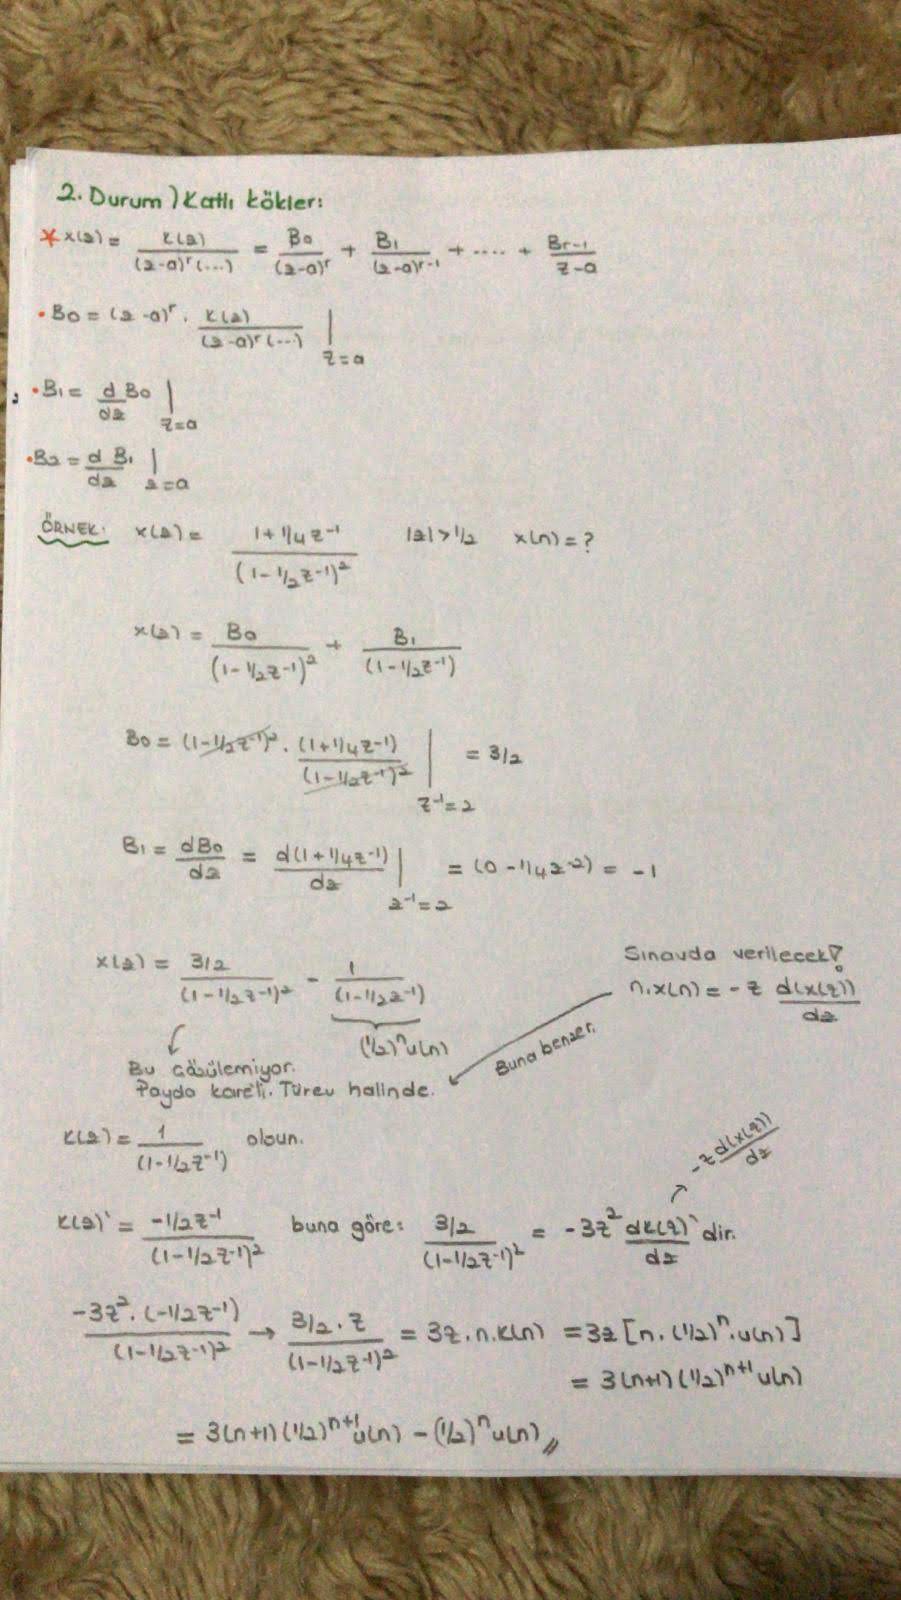 2. Durum) Katlı kökler:
* x(z) = k(z) / (z-a)^r (...) = B0 / (z-a)^r + B1 / (z-a)^r-1 + .... + Br-1 / z-a
• B0 = (z-a)^r . k(z) / (z-a)^r (...) | z=a
• B1 = d B0 / dz | z=a
• B2 = d B1 / dz | z=a
ÖRNEK: x(z) = 1+1/4z^-1 / (1-1/2z^-1)^2 |z|>1/2 x(n)=?
x(z) = B0 / (1-1/2z^-1)^2 + B1 / (1-1/2z^-1)
B0 = (1-1/2z^-1)^2 . (1+1/4z^-1) / (1-1/2z^-1)^2 | z^-1=2 = 3/2
B1 = dB0 / dz = d(1+1/4z^-1) / dz | z^-1=2 = (0-1/4z^-2) = -1
x(z) = 3/2 / (1-1/2z^-1)^2 - 1 / (1-1/2z^-1)
(1/2)^n u(n)
Sınavda verilecek!
n.x(n) = -z d(x(z)) / dz
Buna benzer.
Bu çözülemiyor.
Payda kareli. Türev halinde.
k(z) = 1 / (1-1/2z^-1) olsun.
-z d(x(z)) / dz
k(z)' = -1/2z^-1 / (1-1/2z^-1)^2 buna göre: 3/2 / (1-1/2z^-1)^2 = -3z^2 dk(z)' / dz dir.
-3z^2 . (-1/2z^-1) / (1-1/2z^-1)^2 → 3/2 . z / (1-1/2z^-1)^2 = 3z.n.k(n) = 3z [n.(1/2)^n.u(n)]
= 3(n+1)(1/2)^n+1 u(n)
= 3(n+1)(1/2)^n+1 u(n) - (1/2)^n u(n) //